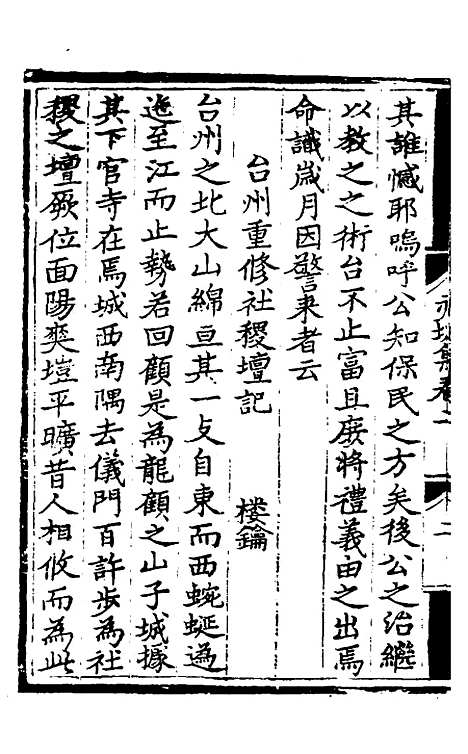 其誰憾耶嗚呼公知保民之方矣後公之治繼
以教之之術台不止富且廢將禮義由之出焉
命識歲月因警來者云
台州重修社稷壇記
樓鑰
台州之北大山綿亘其一攴自東而西蜿蜒迤
迤至江而止勢若回顧是為龍顧之山子城據
其下官寺在焉城西南隅去儀門百許步為社
稷之壇厥位面陽爽塏平曠昔人相攸而為此